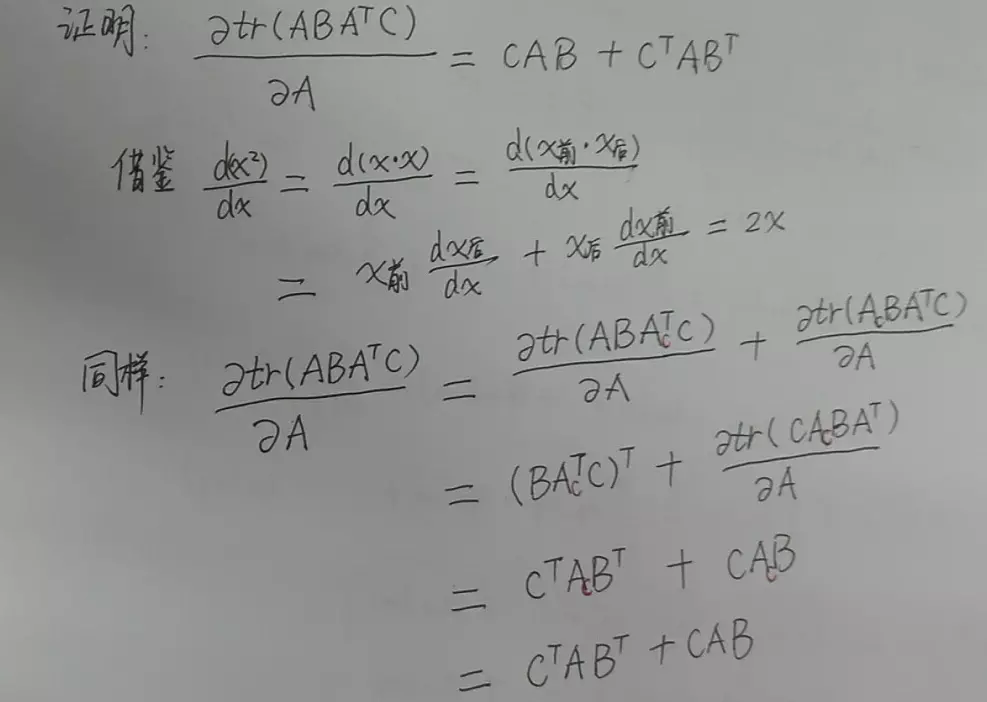 证明: ∂tr(ABAᵀC)/∂A = CAB + CᵀABᵀ
借鉴 d(x²)/dx = d(x·x)/dx = d(x前·x后)/dx
= x前 dx后/dx + x后 dx前/dx = 2x
同样: ∂tr(ABAᵀC)/∂A = ∂tr(ABA_cᵀC)/∂A + ∂tr(A_cBAᵀC)/∂A
= (BA_cᵀC)ᵀ + ∂tr(CA_cBAᵀ)/∂A
= CᵀA_cBᵀ + CA_cB
= CᵀABᵀ + CAB